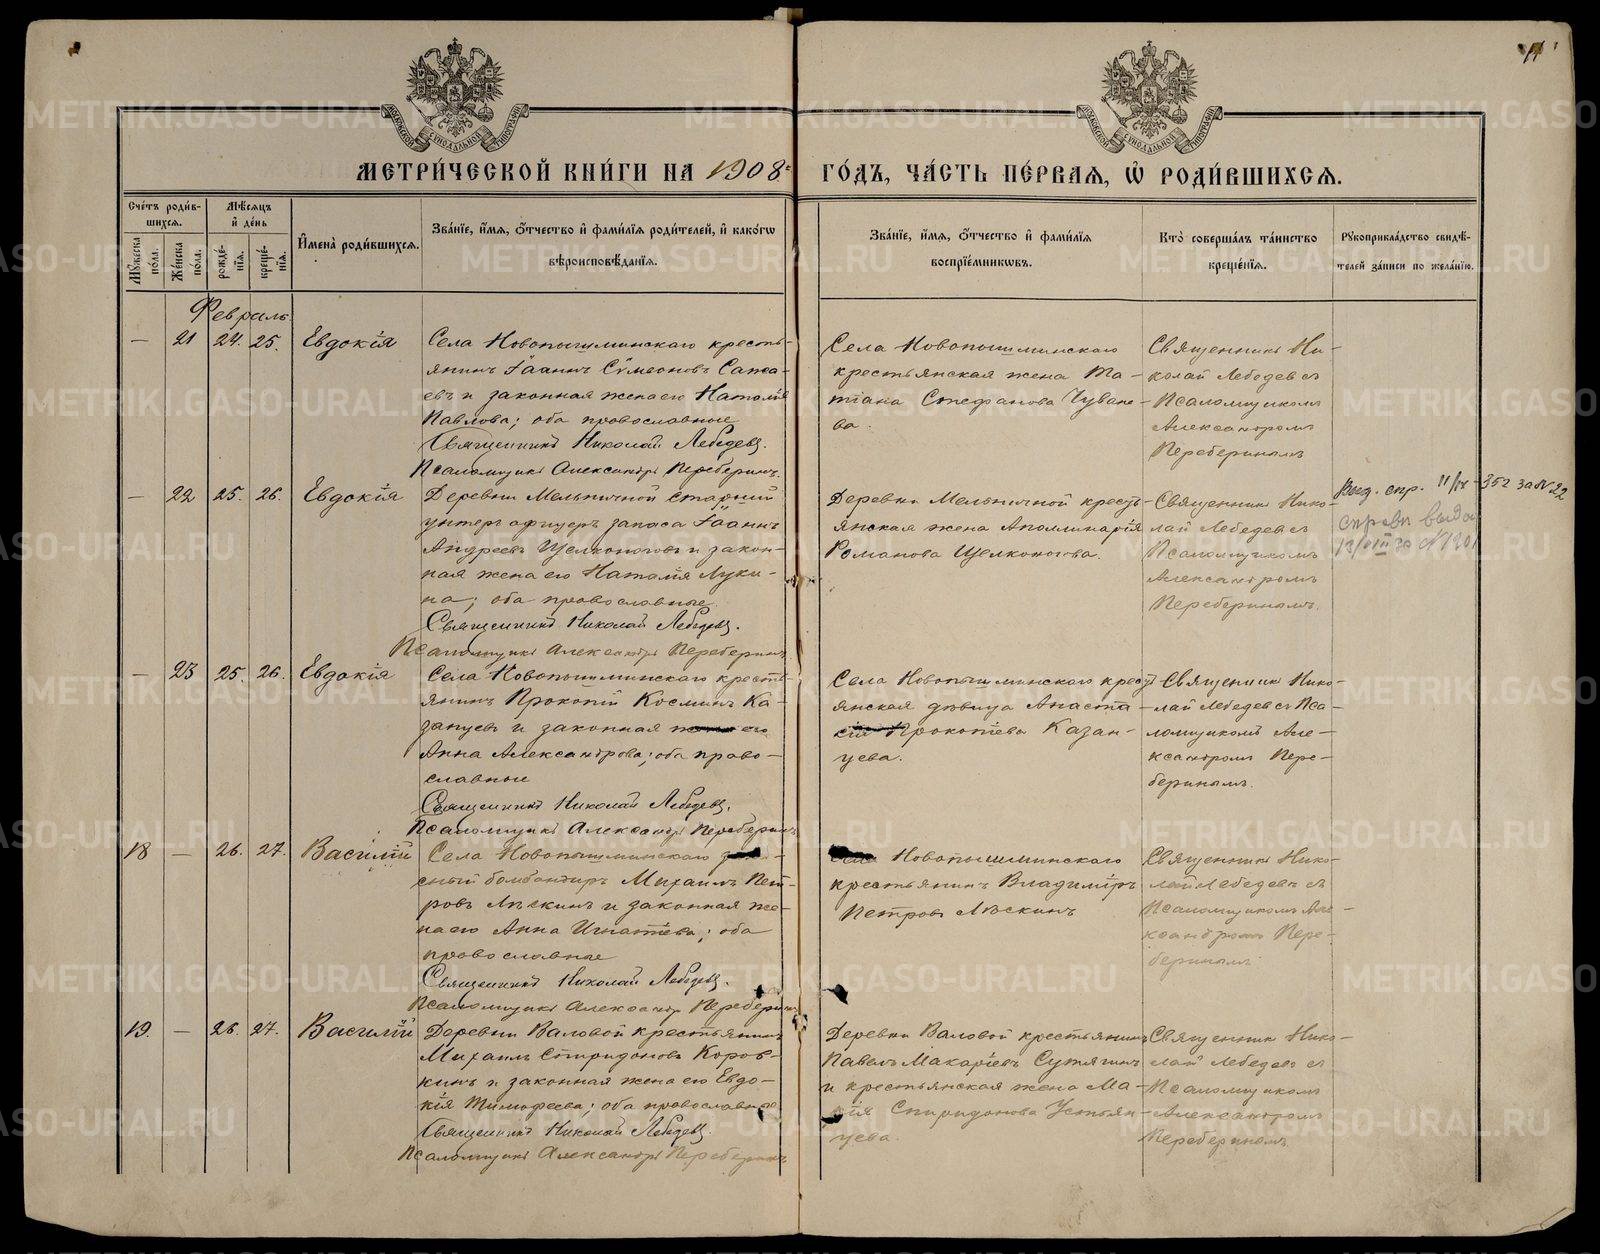 МЕТРИ́ЧЕСКОЙ КНИ́ГИ НА 1908 г
ГО́ДЪ, ЧА́СТЬ ПЕ́РВАѦ, Ѡ РОДИ́ВШИХСѦ.
Сче́тъ роди́в-
шихсѧ.
Мꙋ́жеска
по́ла.
Же́нска
по́ла.
Мѣ́сѧцъ
и҆ де́нь
рожде́-
нїѧ.
креще́-
нїѧ.
И҆мена̀ роди́вшихсѧ.
Зва́нїе, и҆́мѧ, ѻ҆́тчество и҆ фами́лїѧ роди́телей, и҆ како́гѡ
вѣроисповѣ́данїѧ.
Зва́нїе, и҆́мѧ, ѻ҆́тчество и҆ фами́лїѧ
воспрїе́мникѡвъ.
Кто̀ соверша́лъ та́инство
креще́нїѧ.
Рꙋкоприкла́дство свидѣ́-
телей за́писи по жела́нїю.
Февраль
— 21 24. 25. Евдокія
Села Новопышминскаго кресть-
янинъ Іоаннъ Сѵмеоновъ Сажа-
евъ и законная жена его Наталія
Павлова; оба православные
Священникъ Николай Лебедевъ.
Псаломщикъ Александръ Переберинъ.
Села Новопышминскаго
крестьянская жена Та-
тіана Стефанова Чуваше-
ва.
Священникъ Ни-
колай Лебедев съ
Псаломщикомъ
Александромъ
Переберинымъ
— 22 25. 26. Евдокія
Деревни Мельничной старшій
унтеръ офицеръ запаса Іоаннъ
Андреевъ Щелконоговъ и закон-
ная жена его Наталія Луки-
на; оба православные
Священникъ Николай Лебедевъ.
Псаломщикъ Александръ Переберинъ
Деревни Мельничной кресть-
янская жена Аполлинарія
Романова Щелконогова.
Священникъ Нико-
лай Лебедев съ
Псаломщикомъ
Александромъ
Переберинымъ.
Выд. спр.
справ выда
— 23 25. 26. Евдокія
Села Новопышминскаго кресть-
янинъ Прокопій Косминъ Ка-
занцевъ и законная жена его
Анна Александрова; оба право-
славные
Священникъ Николай Лебедевъ.
Псаломщикъ Александръ Переберинъ
Села Новопышминскаго кресть-
янская дѣвица Анаста-
сія Прокопіева Казан-
цева.
Священникъ Нико-
лай Лебедев съ Пса-
ломщикомъ Але-
ксандромъ Пере-
беринымъ.
18 — 26. 27. Василій
Села Новопышминскаго запа-
сный бомбандиръ Михаилъ Пет-
ровъ Лѣскинъ и законная же-
на его Анна Игнатіева; оба
православные
Священникъ Николай Лебедевъ.
Псаломщикъ Александръ Переберинъ
Села Новопышминскаго
крестьянинъ Владиміръ
Петровъ Лѣскинъ
Священникъ Нико-
лай Лебедевъ съ
Псаломщикомъ Але-
ксандромъ Пере-
беринымъ
19. — 26 27. Василій
Деревни Валовой крестьянинъ
Михаилъ Спиридоновъ Коров-
кинъ и законная жена его Евдо-
кія Тимофеева; оба православные
Священникъ Николай Лебедевъ.
Псаломщикъ Александръ Переберинъ
Деревни Валовой крестьянинъ
Павелъ Макаріевъ Сутягинъ
и крестьянская жена Ма-
рія Спиридонова Устьян-
цева.
Священникъ Нико-
лай Лебедевъ съ
Псаломщикомъ
Александромъ
Переберинымъ
METRIKI.GASO-URAL.RU